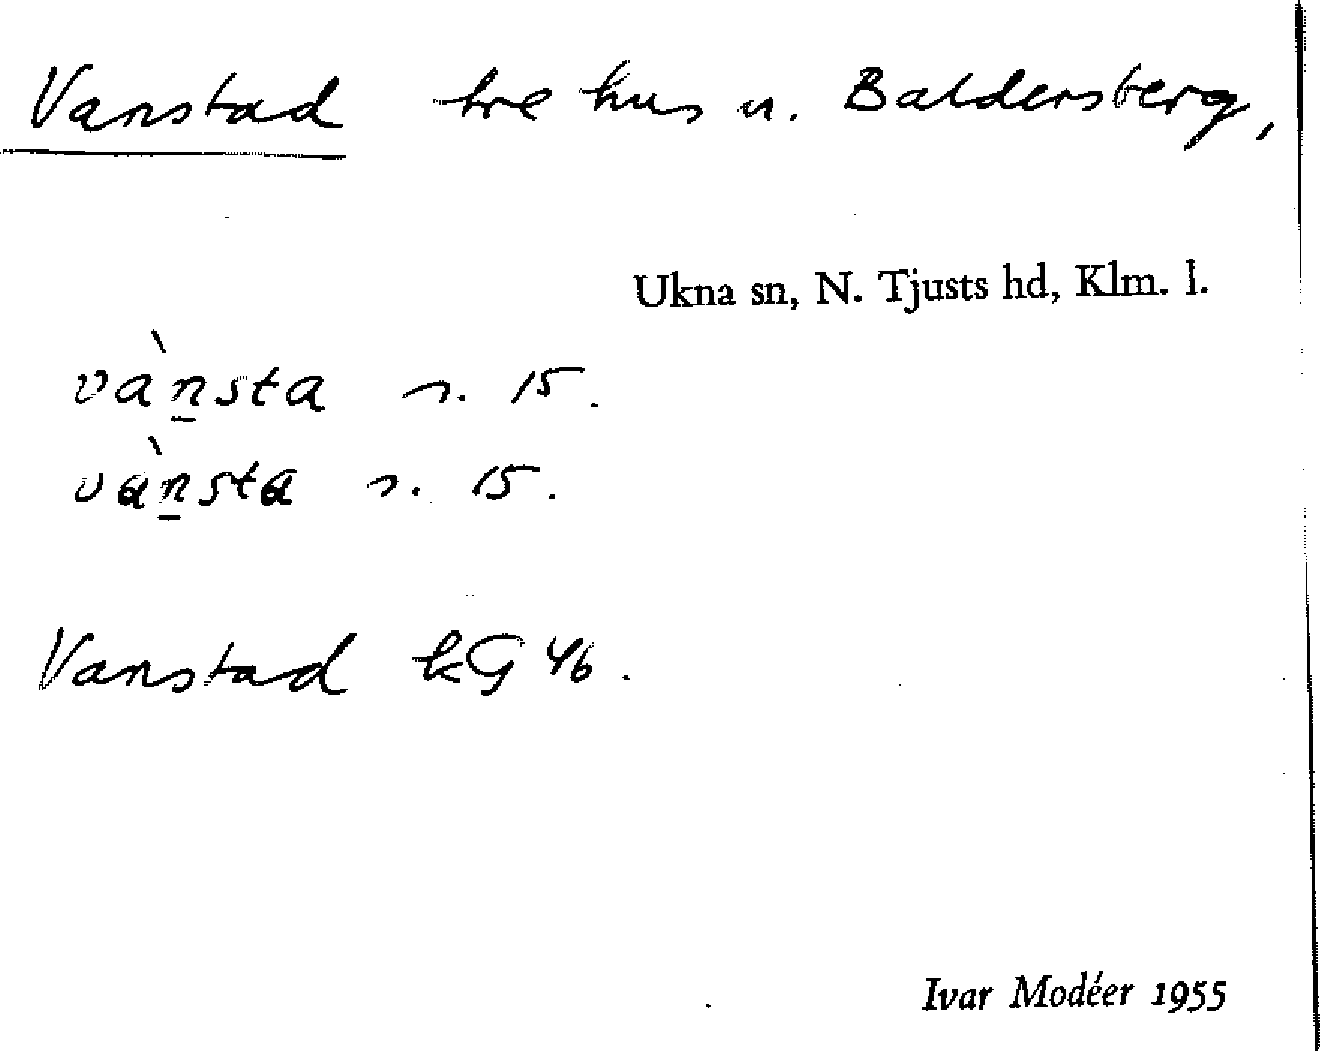 Vanstad tre hus u. Baldersberg,
Ukna sn, N. Tjusts hd, Klm. l.
vàn̲sta s. 15.
vàn̲sta s. 15.
Vanstad kG 46.
Ivar Modéer 1955